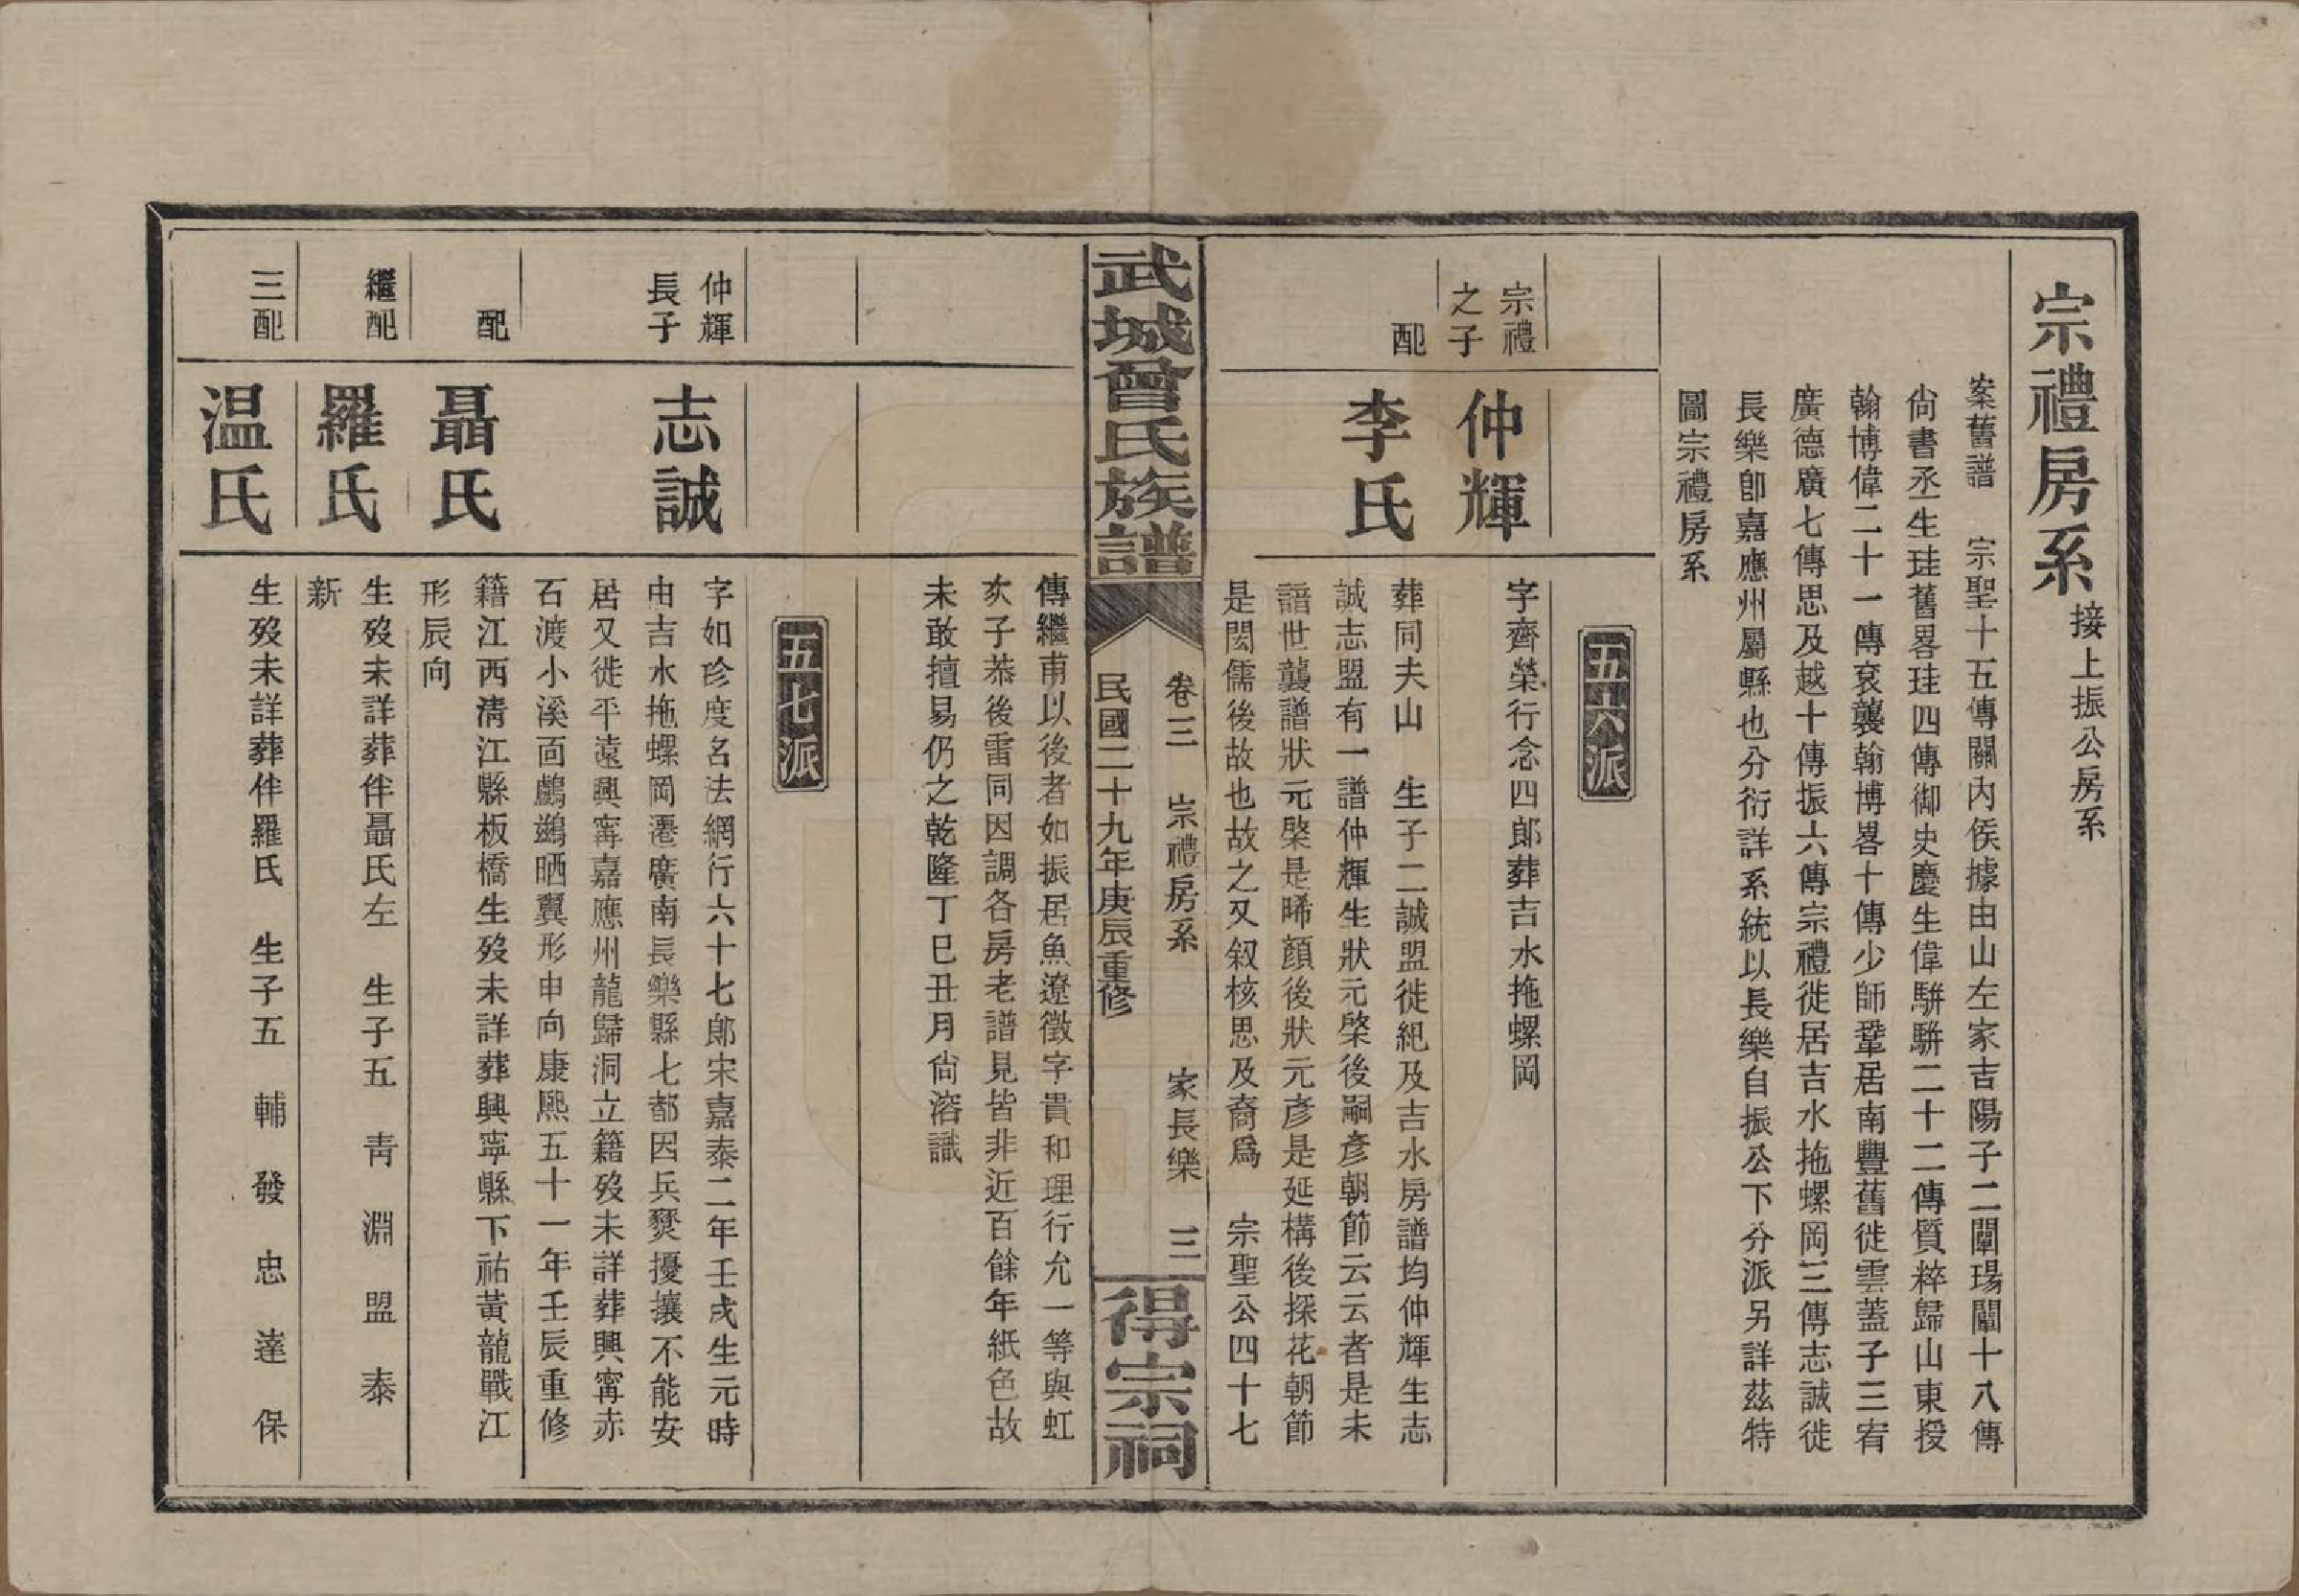 宗禮房系 接上振公房系
案舊譜 宗聖十五傳關內侯據由山左家吉陽子二闡瑒闡十八傳
尙書丞一生珪舊畧珪四傳御史慶生偉駢駢二十二傳質粹歸山東授
翰博偉二十一傳袞襲翰博畧十傳少師鞏居南豐舊徙雲蓋子三宥
廣德廣七傳思及越十傳振六傳宗禮徙居吉水拖螺岡三傳志誠徙
長樂卽嘉應州屬縣也分衍詳系統以長樂自振公下分派另詳茲特
圖宗禮房系
五六派
宗禮
之子
仲輝
字齊榮行念四郎葬吉水拖螺岡
配
李氏
葬同夫山 生子二誠盟徙紀及吉水房譜均仲輝生志
誠志盟有一譜仲輝生狀元棨後嗣彥朝節云云者是未
諳世襲譜狀元棨是晞顏後狀元彥是延構後探花朝節
是閎儒後故也故之又叙核思及裔爲 宗聖公四十七
武城曾氏族譜
卷三 宗禮房系 家長樂 三
民國二十九年庚辰重修
得宗祠
傳繼甫以後者如振居魚遼徵字貴和理行允一等與虹
亥子恭後雷同因調各房老譜見皆非近百餘年紙色故
未敢擅易仍之乾隆丁巳丑月尙溶識
五七派
仲輝
長子
志誠
字如珍度名法網行六十七郎宋嘉泰二年壬戌生元時
由吉水拖螺岡遷廣南長樂縣七都因兵燹擾攘不能安
居又徙平遠興寗嘉應州龍歸洞立籍歿未詳葬興寗赤
石渡小溪面鸕鷀晒翼形申向康熙五十一年壬辰重修
配
聶氏
籍江西清江縣板橋生歿未詳葬興寧縣下祐黃龍戰江
形辰向
繼配
羅氏
生歿未詳葬伴聶氏左 生子五 靑 淵 盟 泰
新
三配
温氏
生歿未詳葬伴羅氏 生子五 輔 發 忠 達 保